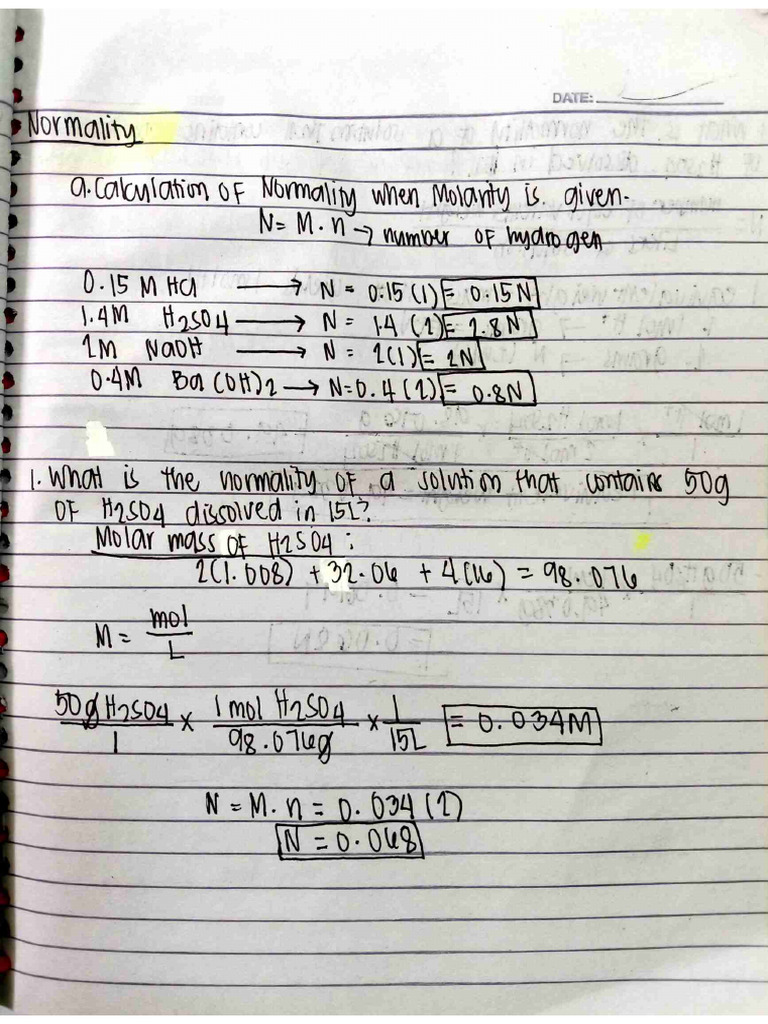 DATE:
Normality
a. Calculation of Normality when Molarity is given.
N = M · n → number of hydrogen
0.15 M HCl → N = 0.15 (1) = 0.15 N
1.4M H2SO4 → N = 1.4 (2) = 2.8 N
2M NaOH → N = 2(1) = 2N
0.4M Ba(OH)2 → N = 0.4 (2) = 0.8N
1. What is the normality of a solution that contains 50g
of H2SO4 dissolved in 15L?
Molar mass of H2SO4 :
2(1.008) + 32.06 + 4(16) = 98.076
M = mol / L
50g H2SO4 / 1 × 1 mol H2SO4 / 98.076g × 1 / 15L = 0.034M
N = M · n = 0.034 (2)
N = 0.068